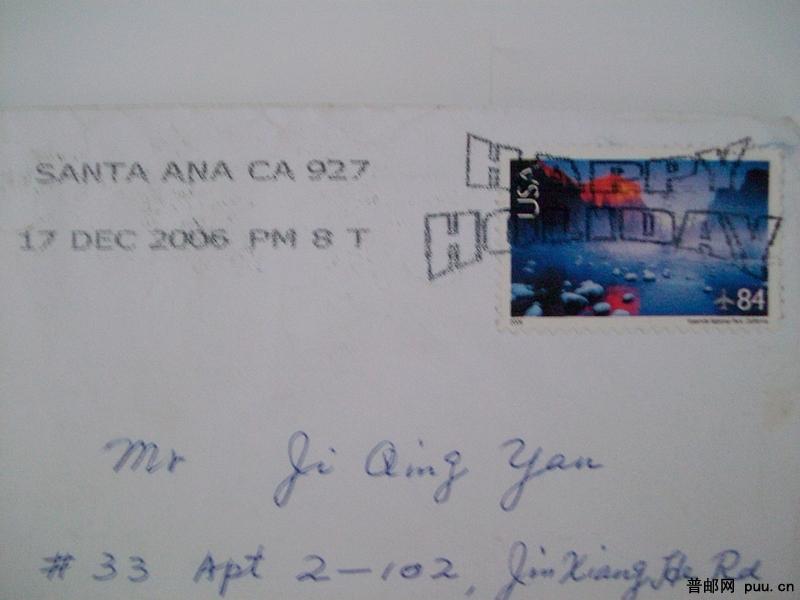 SANTA ANA CA 927
HAPPY
17 DEC 2006 PM 8 T
HOLIDAY
USA
84
Mr Ji Qing Yan
# 33 Apt 2-102, JinXiang He Rd
普邮网 puu.cn